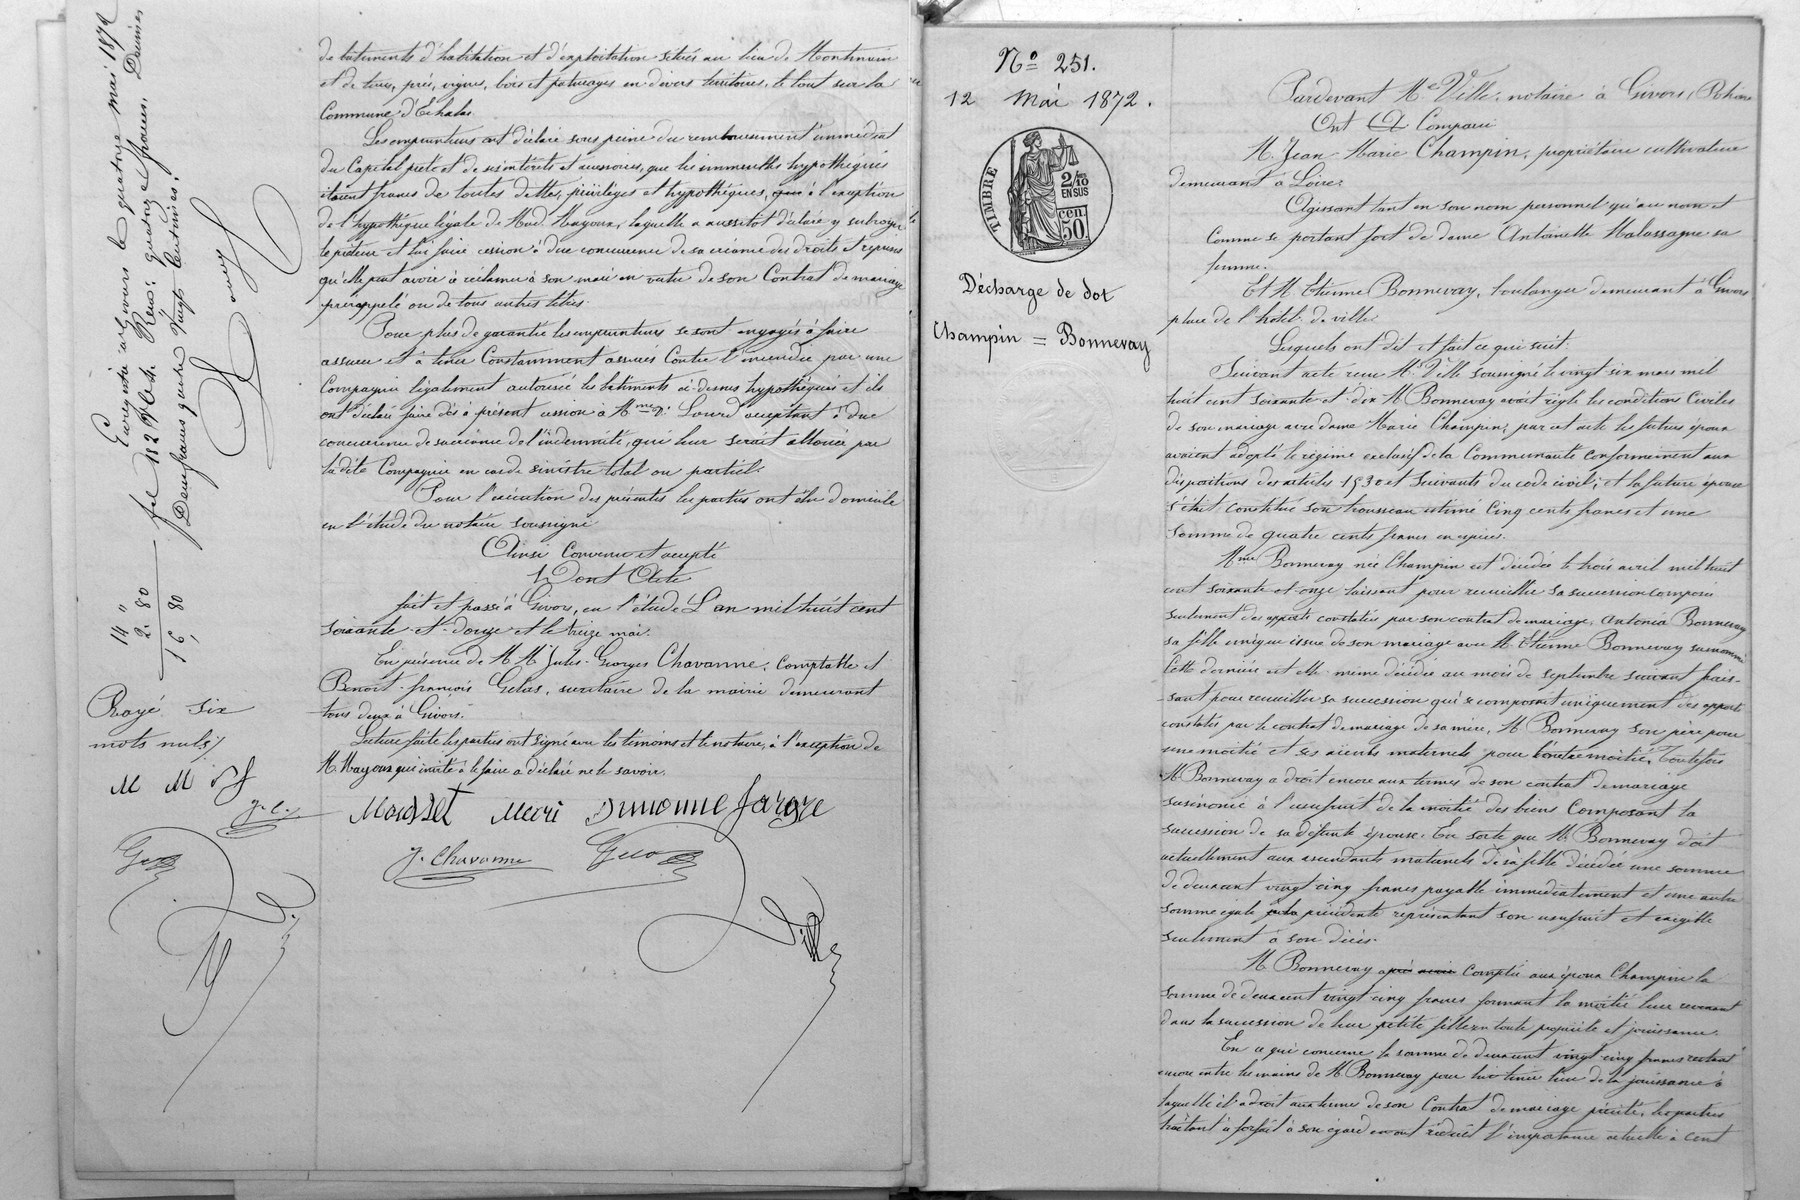 de bâtiments d'habitation et d'exploitation situés au lieu de Montmain
et de terres, prés, vignes, bois et paturages en divers territoires, le tout sur la
Commune d'Echalas
Les emprunteurs ont déclaré sous peine du remboursement immédiat
du Capital prêté et de ses intérêts et accessoires, que les immeubles hypothéqués
étaient francs de toutes dettes, privilèges et hypothèques, à l'exception
de l'hypothèque légale de Mad. Mayoux, laquelle a aussitôt déclaré y subroger
le prêteur et lui faire cession à due concurrence de sa créance des droits et reprises
qu'elle peut avoir à réclamer à son mari en vertu de son Contrat de mariage
prérappelé ou de tous autres titres.
Pour plus de garantie les emprunteurs se sont engagés à faire
assurer et à tenir Constamment assurés Contre l'incendie par une
Compagnie légalement autorisée les bâtiments ci-dessus hypothéqués et ils
ont déclaré faire dès à présent cession à Mme Ve Lourd acceptant à due
concurrence de sa créance de l'indemnité, qui leur serait allouée par
la dite Compagnie en cas de sinistre total ou partiel.
Pour l'exécution des présentes les parties ont élu domicile
en l'étude du notaire soussigné
Ainsi Convenu et accepté
Dont Acte
fait et passé à Givors, en l'étude L'an mil huit cent
soixante-et-douze et le treize mai.
En présence de M M Jules-Georges Chavanne, Comptable et
Benoit-françois Gelas, secrétaire de la mairie demeurant
tous deux à Givors.
Lecture faite les parties ont signé avec les témoins et le notaire, à l'exception de
M. Mayoux qui invité à le faire a déclaré ne le savoir.
J. Chavanne
Ville
Enregistré à Givors le quatorze mai 1872
fol 182 Reçu: quatorze francs, Décimes
Deux francs quatre vingt centimes.
14 "
2. 80
16, 80
Rayé six
mots nuls
M M
J. C.
No 251.
12 Mai 1872.
TIMBRE
2/10
EN SUS
50 cen.
Décharge de dot
Champin = Bonnevay
Pardevant Me Ville, notaire à Givors, Rhône
Ont Comparu
M. Jean Marie Champin, propriétaire cultivateur
demeurant à Loire.
Agissant tant en son nom personnel qu'au nom et
Comme se portant fort de dame Antoinette Malassagne sa
femme.
Et M. Etienne Bonnevay, boulanger demeurant à Givors
place de l'hôtel de ville
Lesquels ont dit et fait ce qui suit.
Suivant acte reçu Me Ville soussigné le vingt six mars mil
huit cent soixante-et-dix M. Bonnevay avait réglé les conditions Civiles
de son mariage avec dame Marie Champin, par cet acte les futurs époux
avaient adopté le régime exclusif de la Communauté conformément aux
dispositions des articles 1530 et suivants du code civil; et la future épouse
s'était constitué son trousseau estimé Cinq cents francs et une
somme de quatre cents francs en espèces.
Mme Bonnevay née Champin est décédée le trois avril mil huit
cent soixante-et-onze laissant pour recueillir sa succession composée
seulement des apports constatés par son contrat de mariage, Antonia Bonnevay
sa fille unique issue de son mariage avec M. Etienne Bonnevay susnommé
Cette dernière est elle-même décédée au mois de septembre suivant lais-
-sant pour recueillir sa succession qui se composait uniquement des apports
constatés par le contrat de mariage de sa mère, M. Bonnevay son père pour
une moitié et ses aïeuls maternels pour l'autre moitié. Toutefois
M. Bonnevay a droit encore aux termes de son contrat de mariage
susénoncé à l'usufruit de la moitié des biens Composant la
succession de sa défunte épouse. En sorte que M. Bonnevay doit
actuellement aux ascendants maternels de sa fille décédée une somme
de deux cent vingt cinq francs payable immédiatement et une autre
somme égale à la précédente représentant son usufruit et exigible
seulement à son décès.
M. Bonnevay après avoir Compté aux époux Champin la
somme de deux cent vingt-cinq francs formant la moitié leur revenant
dans la succession de leur petite fille en toute propriété et jouissance.
En ce qui concerne la somme de deux cent vingt-cinq francs restant
encore entre les mains de M. Bonnevay pour lui tenir lieu de la jouissance à
laquelle il a droit aux termes de son Contrat de mariage précité, les parties
traitant à forfait à son égard en ont réduit l'importance actuelle à cent